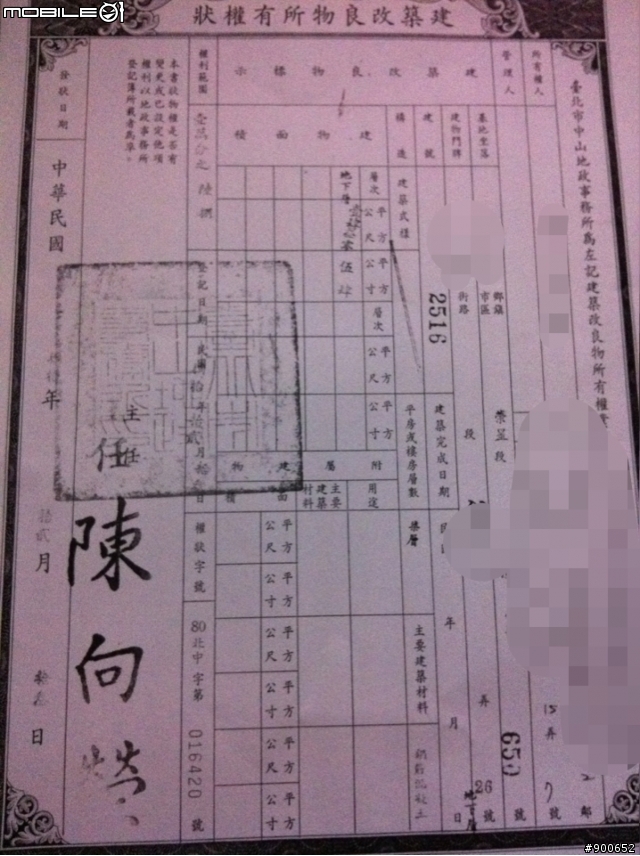 MOBILE01
建築改良物所有權狀
臺北市中山地政事務所為左記建築改良物所有權
所有權人
15弄
7
管理人
號
建築改良物標示
基地坐落
鄉鎮
市區
榮星段
650
建物門牌
街路
段
弄
26號
地下層
建號
2516
建築完成日期
年
月
日
構造
建築式樣
平房或樓房層數
柒層
主要建築材料
建物面積
層次
平方
公尺
公寸
地下層
層次
平方
公尺
公寸
附屬建物
用途
主要
建築
材料
面積
平方
公尺
平方
公寸
平方
公尺
平方
公寸
平方
公尺
平方
公寸
權利範圍
分之
登記日期
民國
年
月
日
權狀字號
80北中字第
016420
號
本書狀物權是否有
變更或已設定他項
權利以地政事務所
登記簿所載者為準。
主任
陳向榮
發狀日期
中華民國
年
月
日
#900652